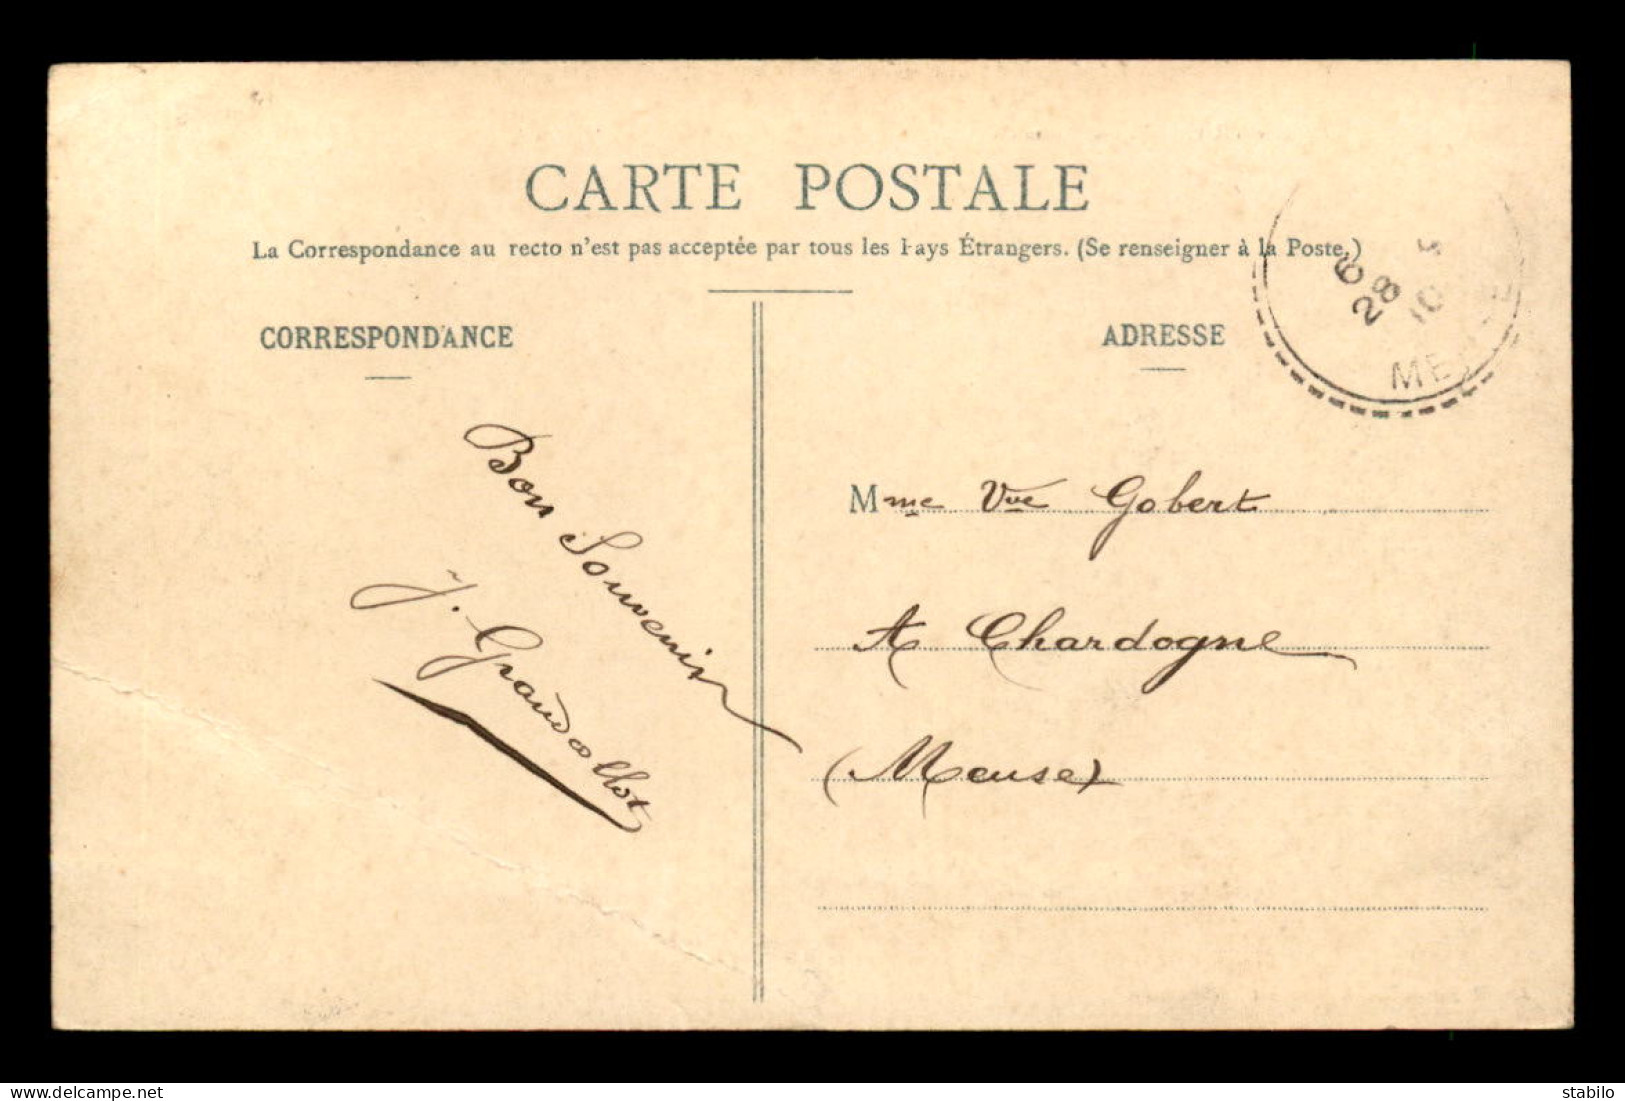 CARTE POSTALE
La Correspondance au recto n'est pas acceptée par tous les Pays Étrangers. (Se renseigner à la Poste.)
CORRESPONDANCE
ADRESSE
6
28
10
ME
Bon Souvenir
J. Grandcollot
Mme Vve Gobert
A Chardogne
(Meuse)
Delcampe.net
stabilo